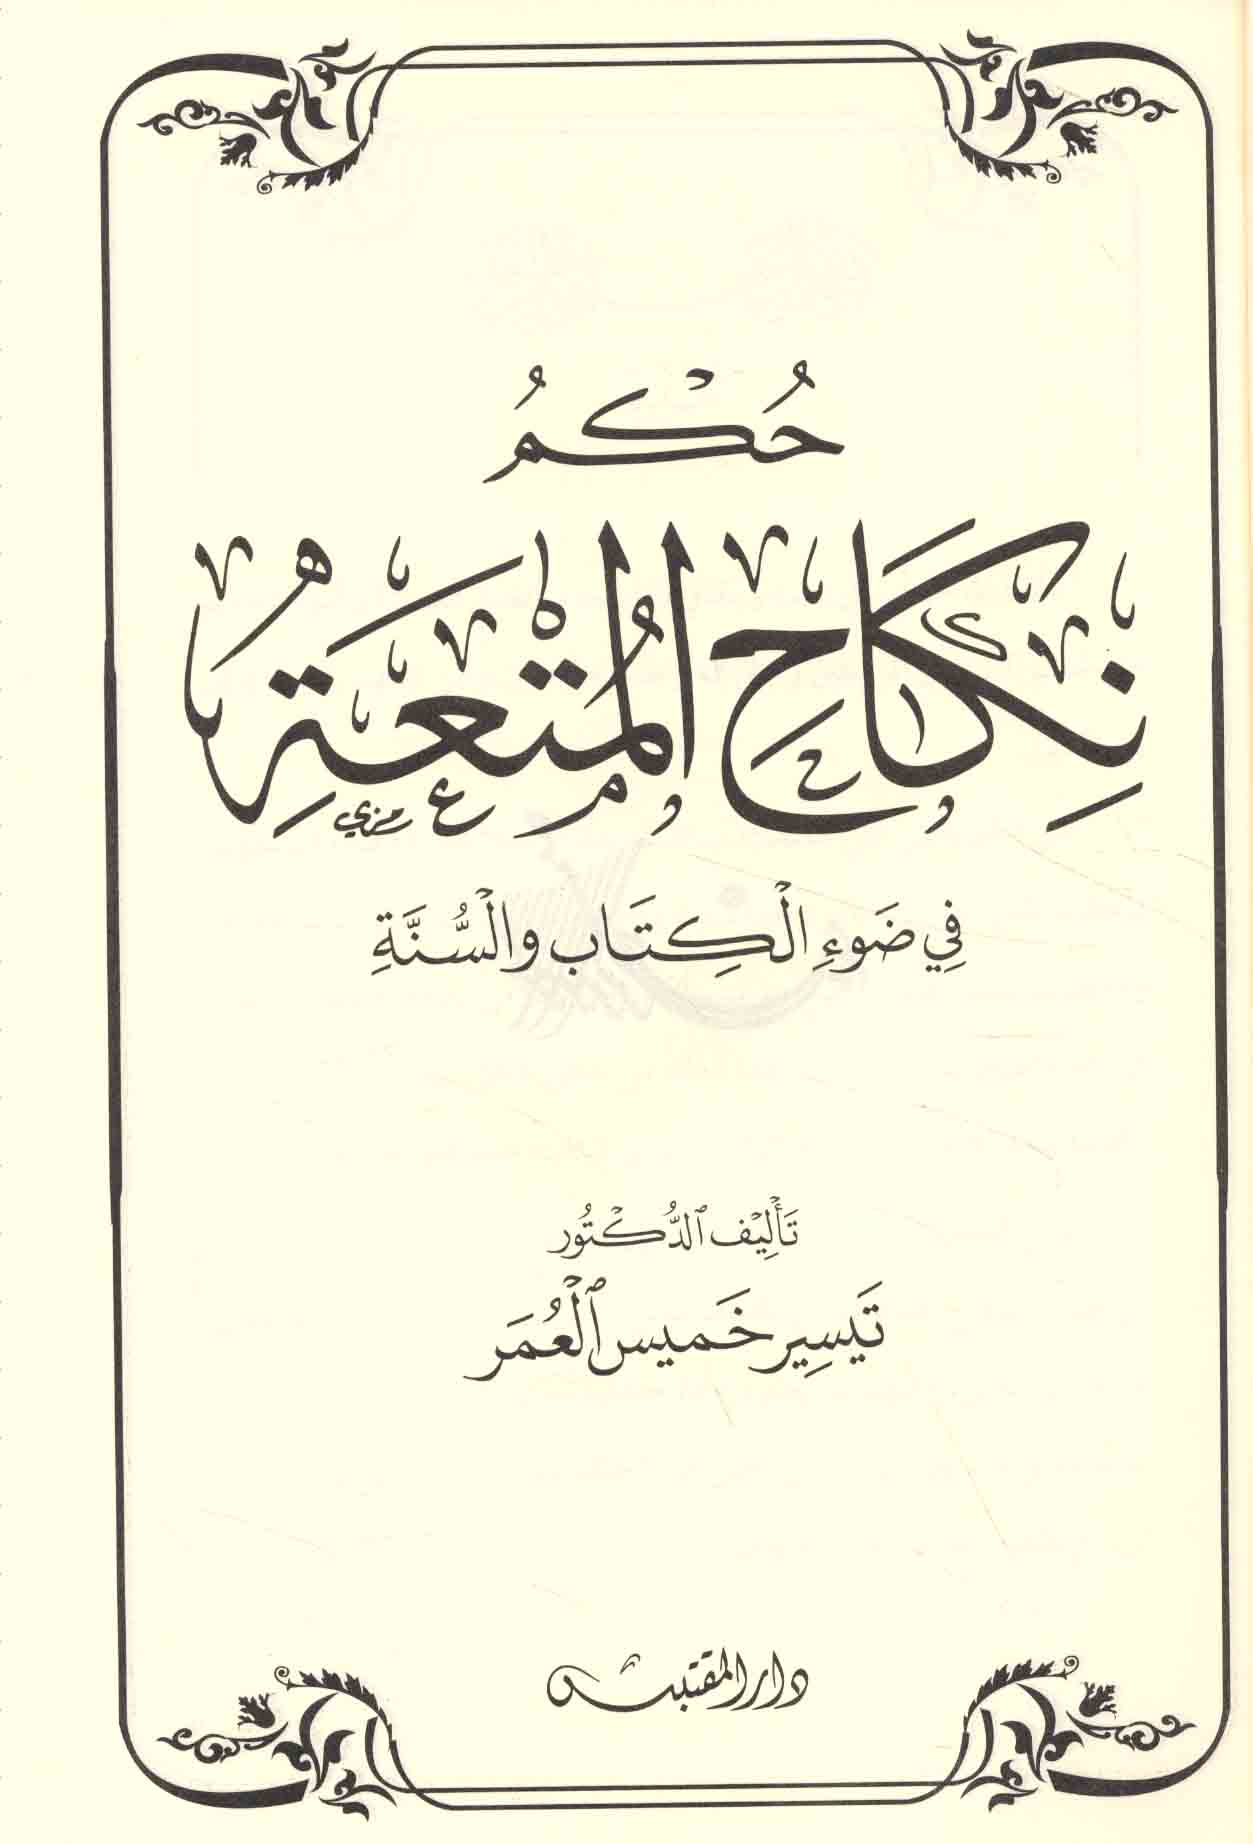 حُكْمُ
نِكَاحِ الْمُتْعَةِ
رمزي
فِي ضَوءِ الْكِتَابِ والْسُّنَّةِ
تَأْلِيْف الدُّكْتُور
تَيسِير خَميس الْعُمَر
دار المقتبس